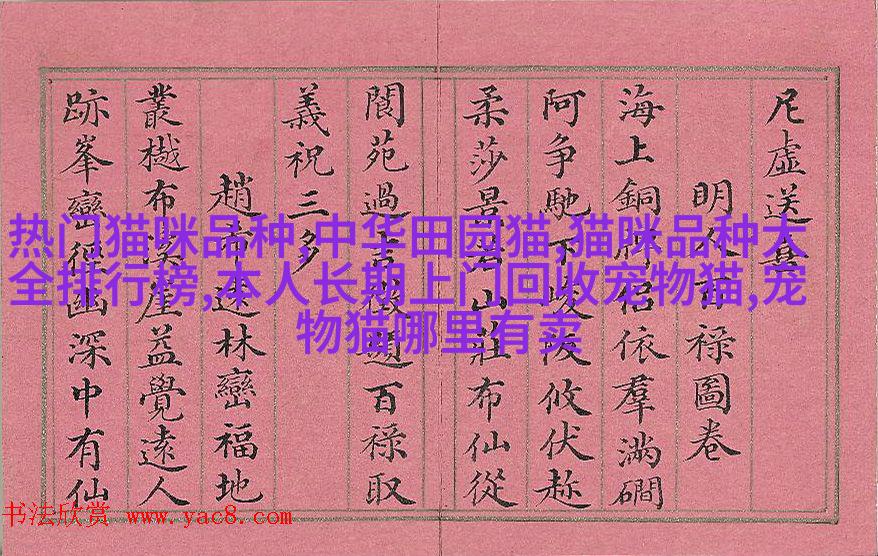 虛送
明人百祿圖卷
海上銅侶依羣滿磵
阿爭馳下陂攸伏
柔莎景山莊布仙從
閬苑過吉徵題百祿取
義祝三多
趙布林巒福地
叢樾布濃崖益覺遠人
跡峯巒徑幽深中有仙
热门猫咪品种,中华田园猫,猫咪品种大
全排行榜,本人长期上门回收宠物猫,宠
物猫哪里有卖
书法欣赏 www.yac8.com